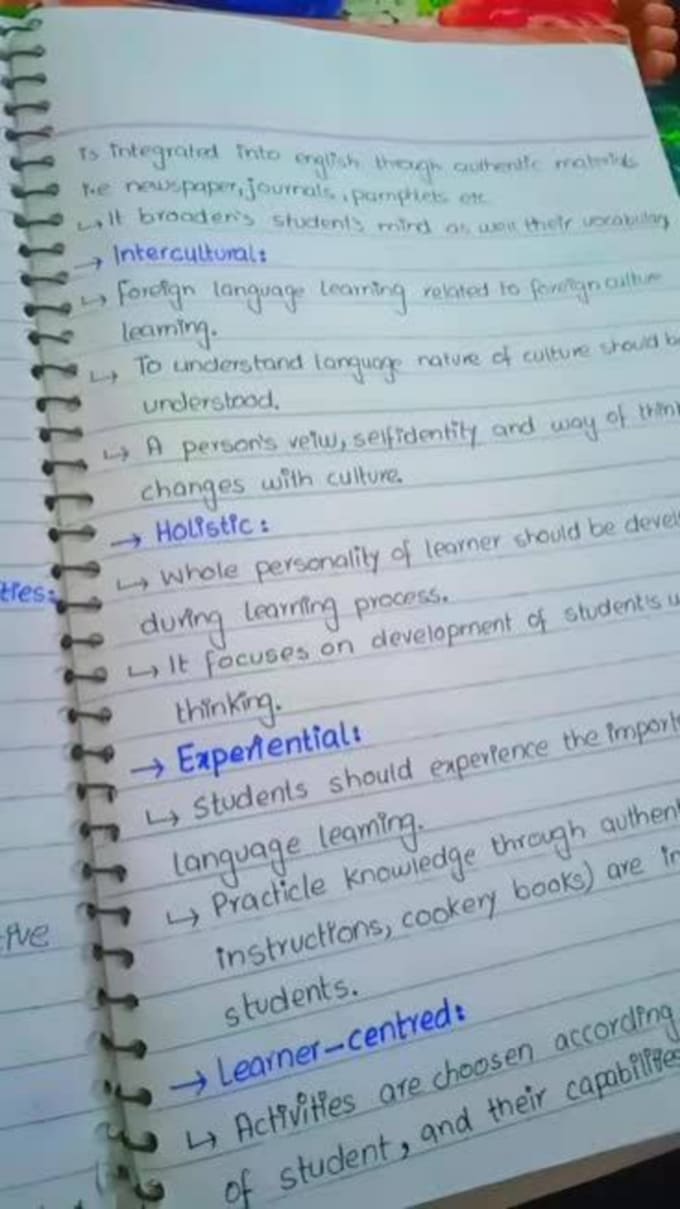 is integrated into english through authentic materials
like newspaper, journals, pamphlets etc
↳ It broaden's student's mind as well their vocabulary
→ Intercultural:
↳ foreign language learning related to foreign culture
learning.
↳ To understand language nature of culture should be
understood.
↳ A person's veiw, selfidentity and way of think
changes with culture.
→ Holistic:
↳ whole personality of learner should be devel
during learning process.
↳ It focuses on development of student's
thinking.
→ Experiential:
↳ Students should experience the import
language learning.
↳ Practicle knowledge through authent
instructions, cookery books) are in
students.
→ Learner-centred:
↳ Activities are choosen according
of student, and their capabilities
ties:
ive